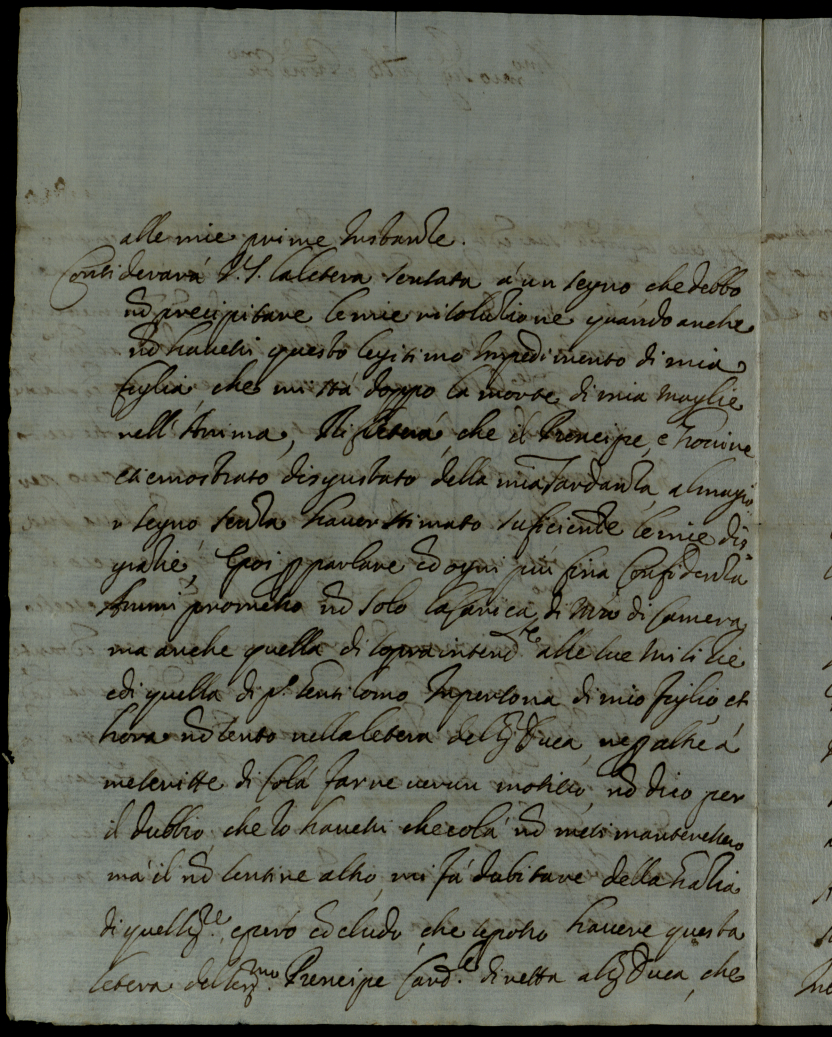 alle mie prime Instanze.
Considerarà V.S. la letera sensata à un segno che debbo
nõ precipitare le mie risolutione quando anche
nõ havessi questo legitimo Impedimento di mia
figlia, che mi stà doppo la morte di mia moglie
nell'Anima, Rifleterà che il Prencipe, e
mostrato disgustato della mia Tardanza al magio
r segno senza haver stimato suficiente le mie dis
gratie, e poi p parlare cõ ogni più fina Confidenza
promesso nõ solo la Carica di Mro di Camera
ma anche quella di sopraintend.te alle sue Militie
e di quella di p.o Gentilomo In persona di mio figlio, et
hora nõ sento nella letera del Duca, ne p altre à
me scritte di Colà farne verun motivo, nõ dico per
il dubbio, che Io havessi che colà nõ mesi mantenessero
mà il nõ sentire altro, mi fà dubitare della
di quell, e però cõcludo, che se potrò havere questa
letera del Ser.mo Prencipe Card.le diretta al Duca, che